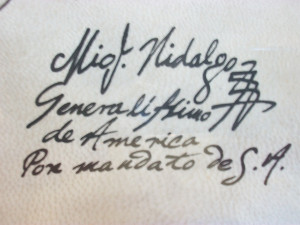 Migl. Hidalgo
Generalissimo
de America
Por mandato de S. A.